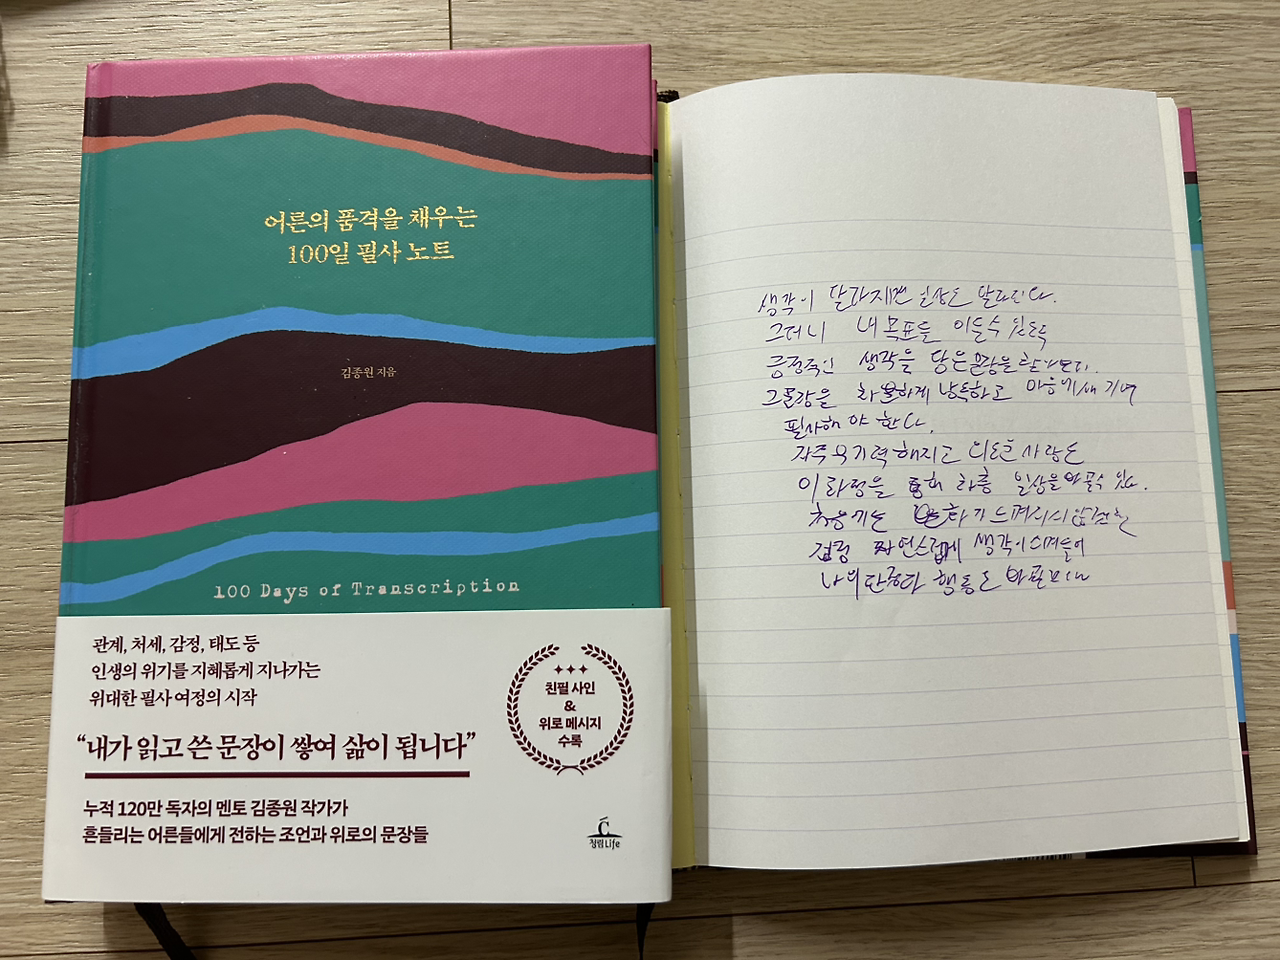 어른의 품격을 채우는
100일 필사 노트
김종원 지음
100 Days of Transcription
관계, 처세, 감정, 태도 등
인생의 위기를 지혜롭게 지나가는
위대한 필사 여정의 시작
“내가 읽고 쓴 문장이 쌓여 삶이 됩니다”
누적 120만 독자의 멘토 김종원 작가가
흔들리는 어른들에게 전하는 조언과 위로의 문장들
친필 사인
&
위로 메시지
수록
청림Life
생각이 달라지면 일상도 달라진다.
그러니 내 목표를 이룰수 있도록
긍정적인 생각을 담은 문장을
그 문장을 차분하게 낭독하고 마음에 새기며
필사해야 한다.
자주 무기력해지고 사람도
이 과정을 통해 각종 일상을 바꿀수 있다.
처음에는
점점 자연스럽게 생각이 스며들어
나의 단어와 행동도